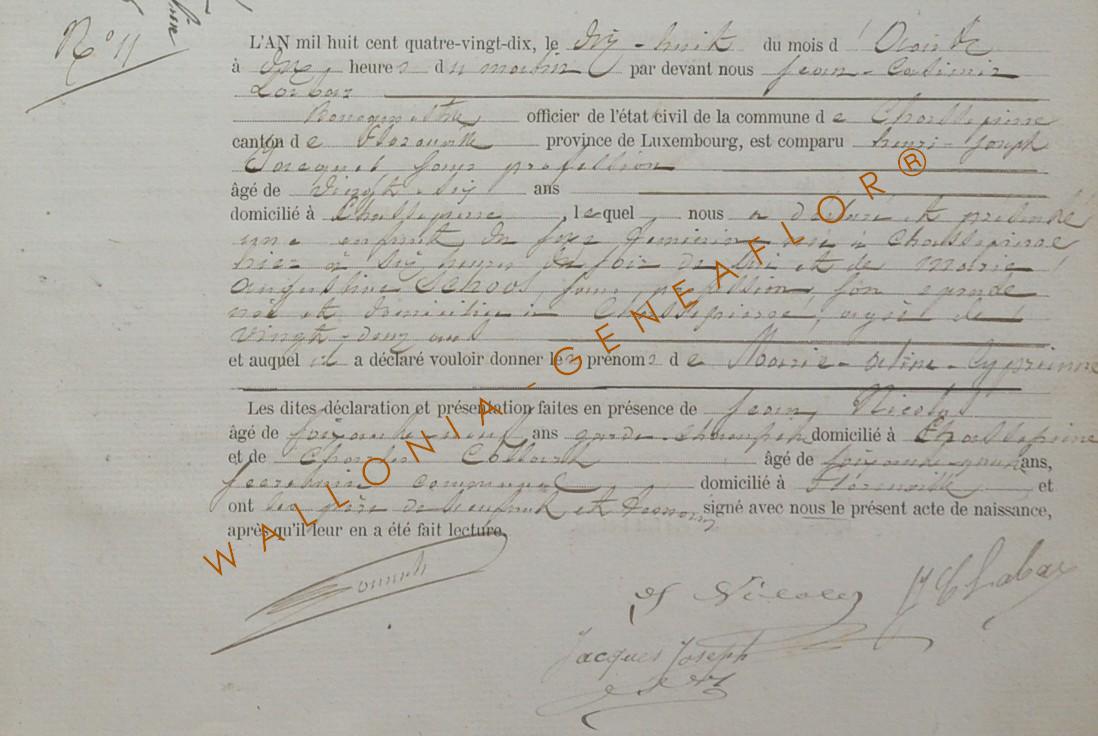 N° 11
L'AN mil huit cent quatre-vingt-dix, le dix-huit du mois d'
à dix heures du matin par devant nous Jean-Casimir
Bourgmestre officier de l'état civil de la commune de Chassepierre
canton de Florenville province de Luxembourg, est comparu henri-Joseph
Jacques sans profession
âgé de Vingt-six ans
domicilié à Chassepierre, lequel nous a déclaré et présenté
une enfant du sexe féminin né à Chassepierre
hier à six heures du soir de lui et de Marie
Augustine Schoos, sans profession, son épouse
née et domiciliée à Chassepierre, agée de
vingt-deux ans
et auquel il a déclaré vouloir donner les prénoms de Marie-Celine-Cyprienne
Les dites déclaration et présentation faites en présence de Jean Nicolas
âgé de soixante-neuf ans garde-champêtre domicilié à Chassepierre
et de Charles Collard âgé de soixante- ans,
secrétaire communal domicilié à Florenville et
ont les père de l'enfant et témoins signé avec nous le présent acte de naissance,
après qu'il leur en a été fait lecture.
Nicolas
Jacques Joseph
WALLONIA - GENEAFLOR®